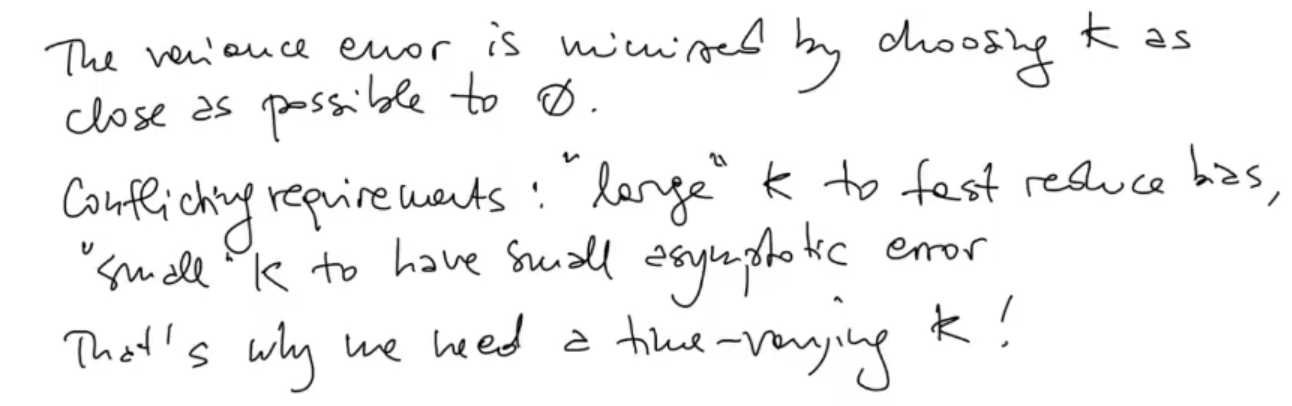 The variance error is minimized by choosing k as
close as possible to Ø.
Conflicting requirements : "large" k to fast reduce bias,
"small" k to have small asymptotic error
That's why we need a time-varying k!